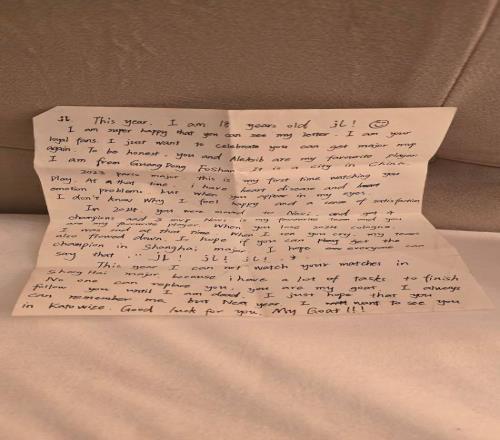 jL. This year. I am 18 years old jL! ☺
I am super happy that you can see my letter. I am your
loyal fans. I just want to celebrate you can get major mvp
again. To be honest. you and Aleksib are my favourite player.
I am from GuangDong Foshan. It is a city in China.
2023 Paris major this is my first time watching you
play. At that time. i have heart disease and
emotion problems but when you appear in my eyes.
I don't know Why I feel happy and a sense of satisfaction
In 2024. you were moved to Navi and get 4
champions and 2 mvp Navi is my favourite team and you
are my favourite player. When you lose 2024 cologne.
I was sad at that time. When I see you cry. my tears
also flowed down. I hope if you can get the
champion in Shanghai major. I hope everyone can
say that "jL! jL! jL!"
This year I can not watch your matches in
ShangHai major because i have a lot of tasks to finish
No one can replace you. you are my goat. I always
follow you until I am dead. I just hope that you
can remember me. but Next year I want to see you
in Katowice. Good luck for you. My Goat!!!